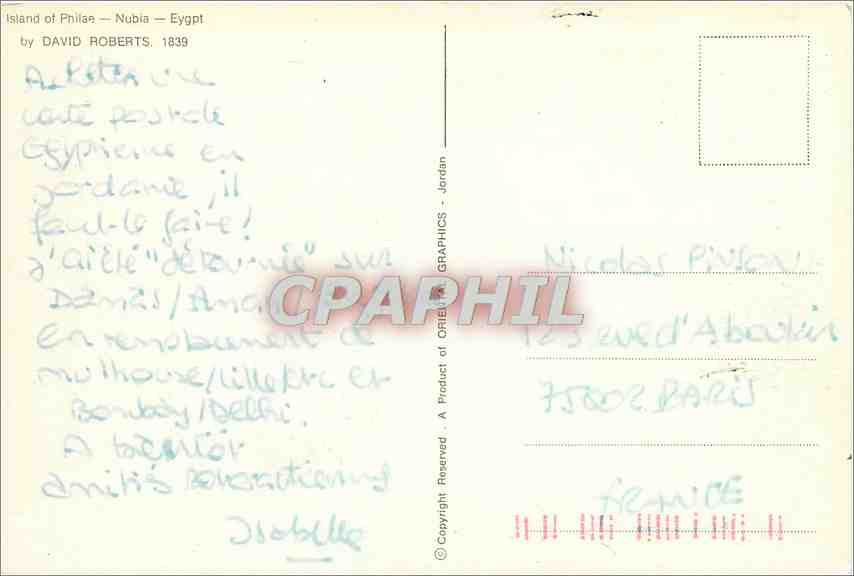 Island of Philae — Nubia — Eygpt
by DAVID ROBERTS. 1839
Acheter une
carte postale
Egyptienne en
Jordanie, il
faut-le faire!
J'ai été "détournée" sur
Damas/Amman
En remplacement de
Mulhouse/Lille etc et
Bombay/Delhi.
A bientôt
amitiés
Isabelle
© Copyright Reserved . A Product of ORIENTAL GRAPHICS - Jordan
CPAPHIL
Nicolas
rue d'Aboukir
75002 PARIS
FRANCE